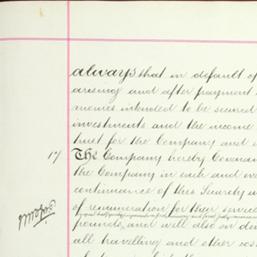 always that in default of
arising and after payment
monies intended to be secured
investments and the income
trust for the Company and
17 The Company hereby Covenan
the Company in each and eve
continuance of this Security
of remuneration for their service
pounds, and will also on de
all travelling and other cos